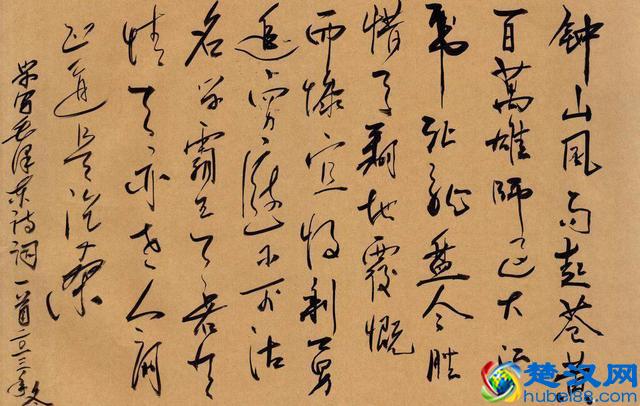 钟山風雨起苍黄
百萬雄師过大江
虎踞龍盘今胜
惜天翻地覆慨
而慷宜将剩勇
追穷寇不可沽
名学霸王天若有
情天亦老人间
正道是沧桑
毛泽东诗词一首二〇一三年冬
楚汉网
hubei88.com